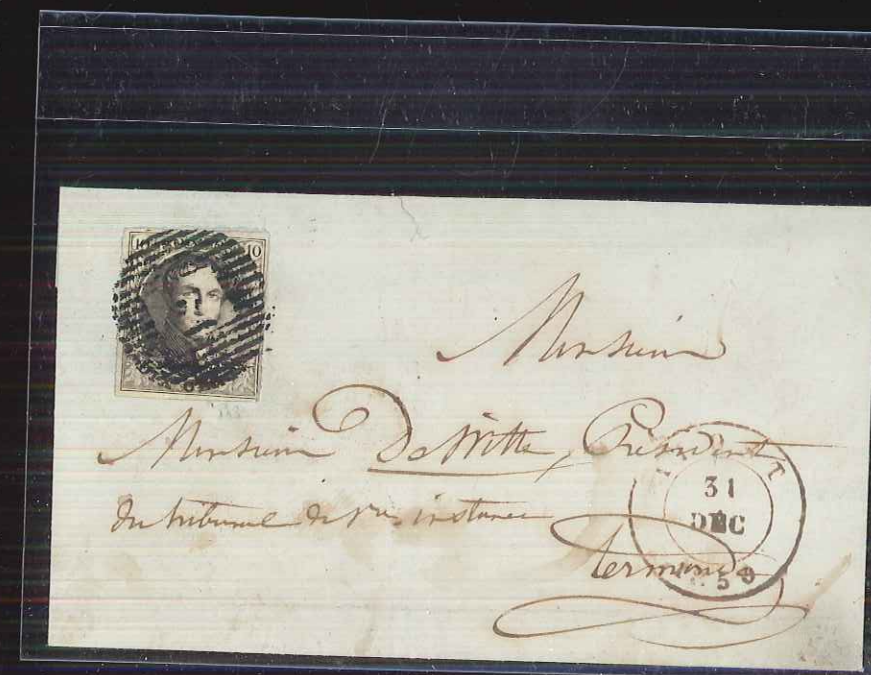 10
Monsieur
Monsieur De Witte, Président
du tribunal de 1re instance
Termonde
31
DEC